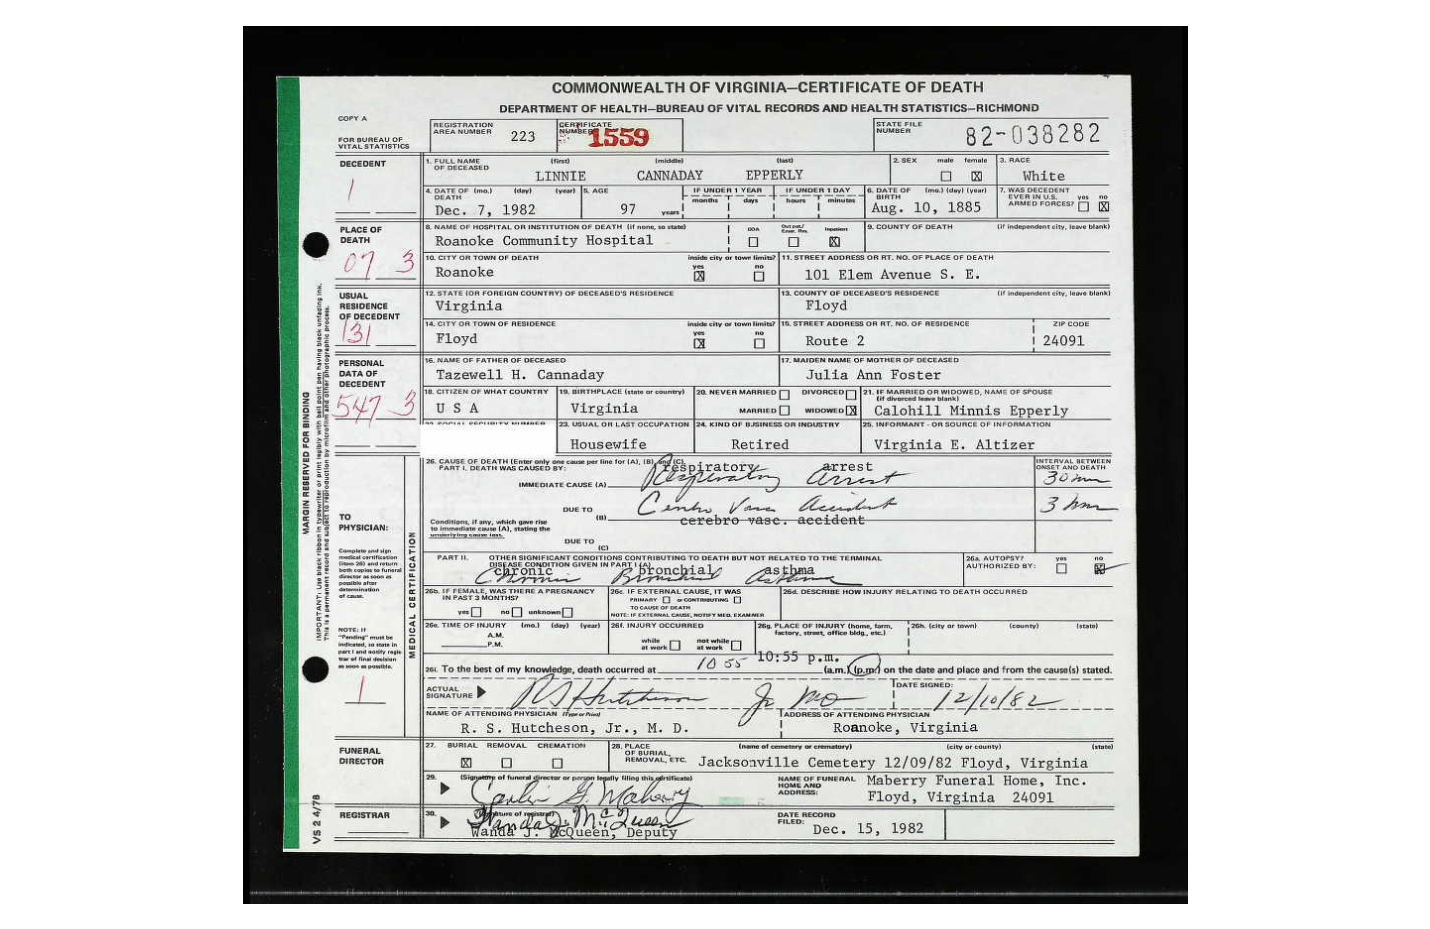 COMMONWEALTH OF VIRGINIA—CERTIFICATE OF DEATH
DEPARTMENT OF HEALTH—BUREAU OF VITAL RECORDS AND HEALTH STATISTICS—RICHMOND
COPY A
FOR BUREAU OF VITAL STATISTICS
REGISTRATION AREA NUMBER 223
CERTIFICATE NUMBER 1559
STATE FILE NUMBER 82-038282
DECEDENT
1
1. FULL NAME OF DECEASED (first) (middle) (last)
LINNIE CANNADAY EPPERLY
2. SEX male female X
3. RACE White
4. DATE OF DEATH (mo.) (day) (year) Dec. 7, 1982
5. AGE 97 years
IF UNDER 1 YEAR months days
IF UNDER 1 DAY hours minutes
6. DATE OF BIRTH (mo.) (day) (year) Aug. 10, 1885
7. WAS DECEDENT EVER IN U.S. ARMED FORCES? yes no X
PLACE OF DEATH
07 3
8. NAME OF HOSPITAL OR INSTITUTION OF DEATH (if none, so state)
Roanoke Community Hospital
DOA Out pat./Emer. Rm. Inpatient X
9. COUNTY OF DEATH (if independent city, leave blank)
10. CITY OR TOWN OF DEATH inside city or town limits? yes X no
Roanoke
11. STREET ADDRESS OR RT. NO. OF PLACE OF DEATH
101 Elem Avenue S. E.
USUAL RESIDENCE OF DECEDENT
131
12. STATE (OR FOREIGN COUNTRY) OF DECEASED'S RESIDENCE
Virginia
13. COUNTY OF DECEASED'S RESIDENCE (if independent city, leave blank)
Floyd
14. CITY OR TOWN OF RESIDENCE inside city or town limits? yes X no
Floyd
15. STREET ADDRESS OR RT. NO. OF RESIDENCE ZIP CODE
Route 2 24091
PERSONAL DATA OF DECEDENT
547 3
16. NAME OF FATHER OF DECEASED
Tazewell H. Cannaday
17. MAIDEN NAME OF MOTHER OF DECEASED
Julia Ann Foster
18. CITIZEN OF WHAT COUNTRY
U S A
19. BIRTHPLACE (state or country)
Virginia
20. NEVER MARRIED DIVORCED
MARRIED WIDOWED X
21. IF MARRIED OR WIDOWED, NAME OF SPOUSE (if divorced leave blank)
Calohill Minnis Epperly
22. SOCIAL SECURITY NUMBER
23. USUAL OR LAST OCCUPATION
Housewife
24. KIND OF BUSINESS OR INDUSTRY
Retired
25. INFORMANT - OR SOURCE OF INFORMATION
Virginia E. Altizer
MARGIN RESERVED FOR BINDING
IMPORTANT: Use black ribbon in typewriter or print legibly with ball point pen having black unfading ink.
This is a permanent record and subject to reproduction by microfilm and other photographic process.
VS 2 4/78
MEDICAL CERTIFICATION
TO PHYSICIAN:
Complete and sign medical certification (item 26) and return both copies to funeral director as soon as possible after determination of cause.
NOTE: If "Pending" must be indicated, so state in part I and notify registrar of final decision as soon as possible.
1
26. CAUSE OF DEATH (Enter only one cause per line for (A), (B), and (C).
PART I. DEATH WAS CAUSED BY:
INTERVAL BETWEEN ONSET AND DEATH
respiratory arrest
IMMEDIATE CAUSE (A) Respiratory Arrest 30 min
DUE TO (B) Cerebro Vasc Accident
cerebro vasc. accident
Conditions, if any, which gave rise to immediate cause (A), stating the underlying cause last.
DUE TO (C)
PART II. OTHER SIGNIFICANT CONDITIONS CONTRIBUTING TO DEATH BUT NOT RELATED TO THE TERMINAL DISEASE CONDITION GIVEN IN PART I (A)
chronic bronchial asthma
Chronic Bronchial Asthma
26a. AUTOPSY? AUTHORIZED BY: yes no X
26b. IF FEMALE, WAS THERE A PREGNANCY IN PAST 3 MONTHS?
yes no unknown
26c. IF EXTERNAL CAUSE, IT WAS
PRIMARY or CONTRIBUTING
TO CAUSE OF DEATH
NOTE: IF EXTERNAL CAUSE, NOTIFY MED. EXAMINER
26d. DESCRIBE HOW INJURY RELATING TO DEATH OCCURRED
26e. TIME OF INJURY (mo.) (day) (year)
A.M.
P.M.
26f. INJURY OCCURRED
while at work not while at work
26g. PLACE OF INJURY (home, farm, factory, street, office bldg., etc.)
26h. (city or town) (county) (state)
26i. To the best of my knowledge, death occurred at 10 55 10:55 p.m. (a.m.) (p.m.) on the date and place and from the cause(s) stated.
ACTUAL SIGNATURE R S Hutcheson Jr MD
DATE SIGNED: 12/10/82
NAME OF ATTENDING PHYSICIAN (Type or Print)
R. S. Hutcheson, Jr., M. D.
ADDRESS OF ATTENDING PHYSICIAN
Roanoke, Virginia
FUNERAL DIRECTOR
27. BURIAL REMOVAL CREMATION
X
28. PLACE OF BURIAL, REMOVAL, ETC. (name of cemetery or crematory) (city or county) (state)
Jacksonville Cemetery 12/09/82 Floyd, Virginia
29. (Signature of funeral director or person legally filing this certificate)
NAME OF FUNERAL HOME AND ADDRESS:
Maberry Funeral Home, Inc.
Floyd, Virginia 24091
REGISTRAR
30. (Signature of registrar)
Wanda J. McQueen
Wanda J. McQueen, Deputy
DATE RECORD FILED: Dec. 15, 1982